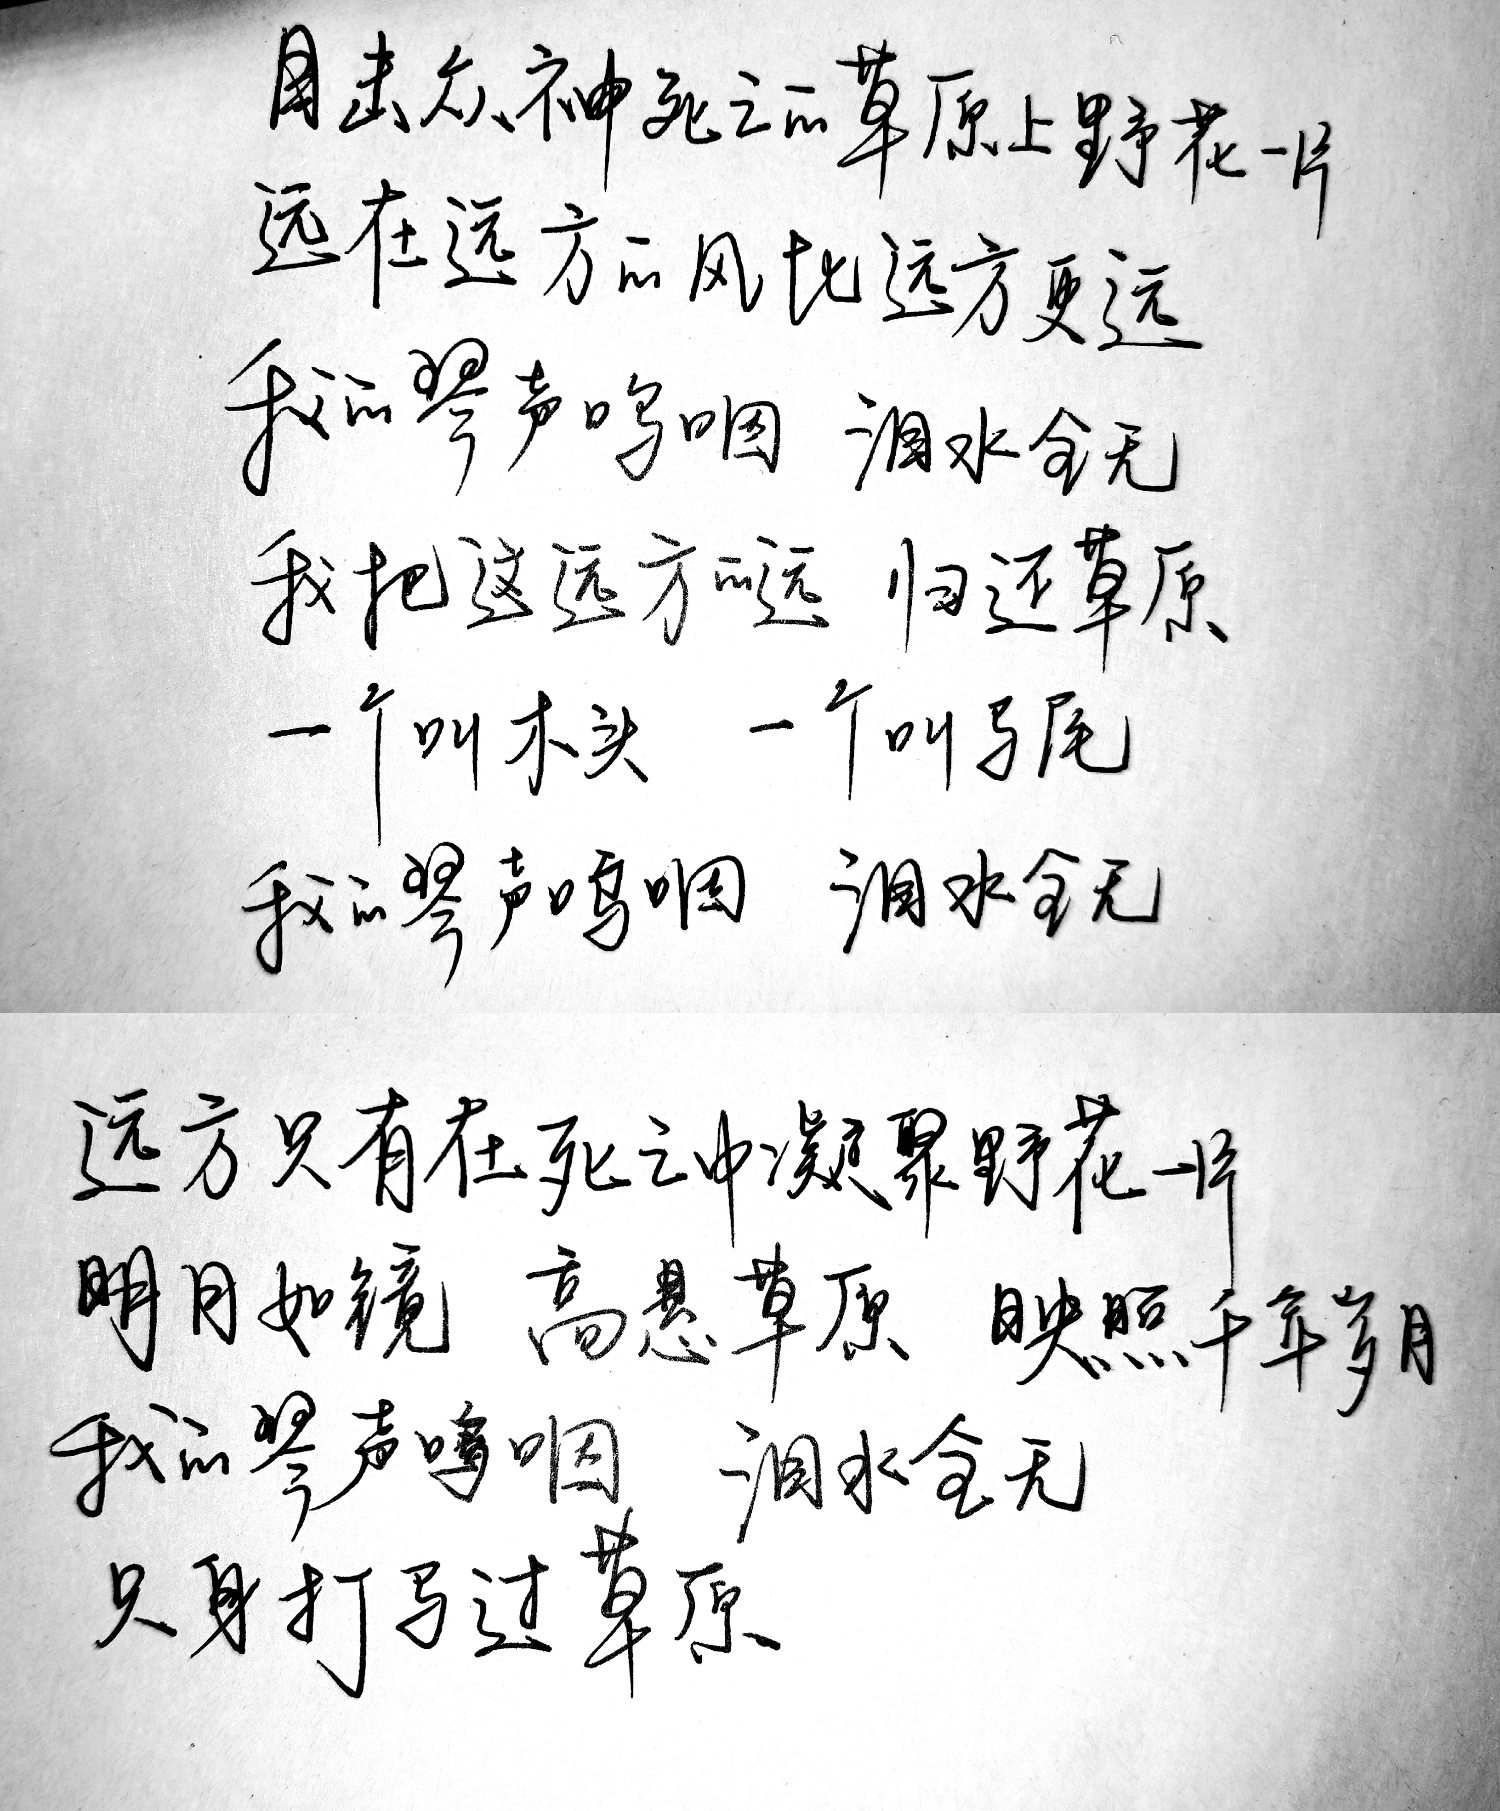 目击众神死亡的草原上野花一片
远在远方的风比远方更远
我的琴声呜咽 泪水全无
我把这远方的远 归还草原
一个叫木头 一个叫马尾
我的琴声呜咽 泪水全无
远方只有在死亡中凝聚野花一片
明月如镜 高悬草原 映照千年岁月
我的琴声呜咽 泪水全无
只身打马过草原